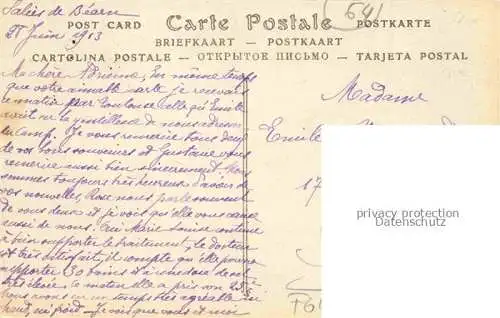 Salies de Béarn
25 Juin 1913
641
POST CARD Carte Postale POSTKARTE
BRIEFKAART - POSTKAART
CARTOLINA POSTALE - ОТКРЫТОЕ ПИСЬМО - TARJETA POSTAL
Ma chère Adrienne, En même temps
que votre aimable carte je recevais
ce matin par Toulouse celle qu'Emile
avait eu la gentillesse de nous adresser
du Camp. Je vous remercie tous deux
de vos bons souvenirs et Gustave vous
remercie aussi bien sincèrement. Nous
sommes toujours très heureux d'avoir de
vos nouvelles, Rose nous parle souvent
de vous deux et je vois qu'elle vous cause
aussi de nous. Ici Marie Louise continue
à bien supporter le traitement, le docteur
est très satisfait, il compte qu'elle pourra
supporter 30 bains
très élevée. Ce matin elle a pris son 25e
nous avons eu un temps très agréable ni
chaud, ni froid. Je vois que vous et moi
Madame
Emile
17
privacy protection
www.oldthing.de